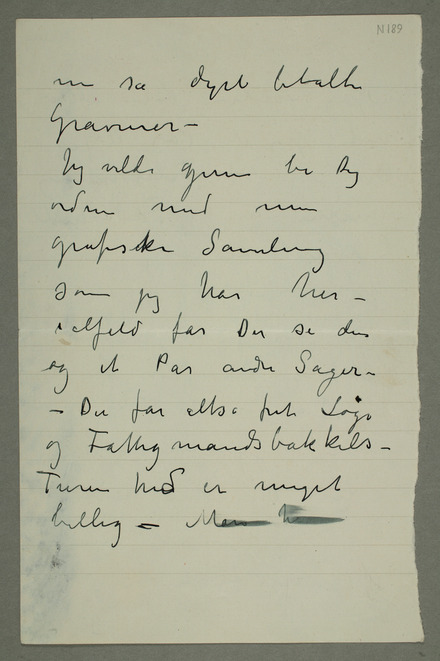 N189
nu så dyrt betalte
Gravurer –
Jeg vilde gjerne be Dig
ordne med min
grafiske Samling
som jeg har her –
ialfeld får Du se den
og et Par andre Sager –
– Du får altså frit Logi
og Fattigmandsbakkels –
Turen hid er meget
billig – Men